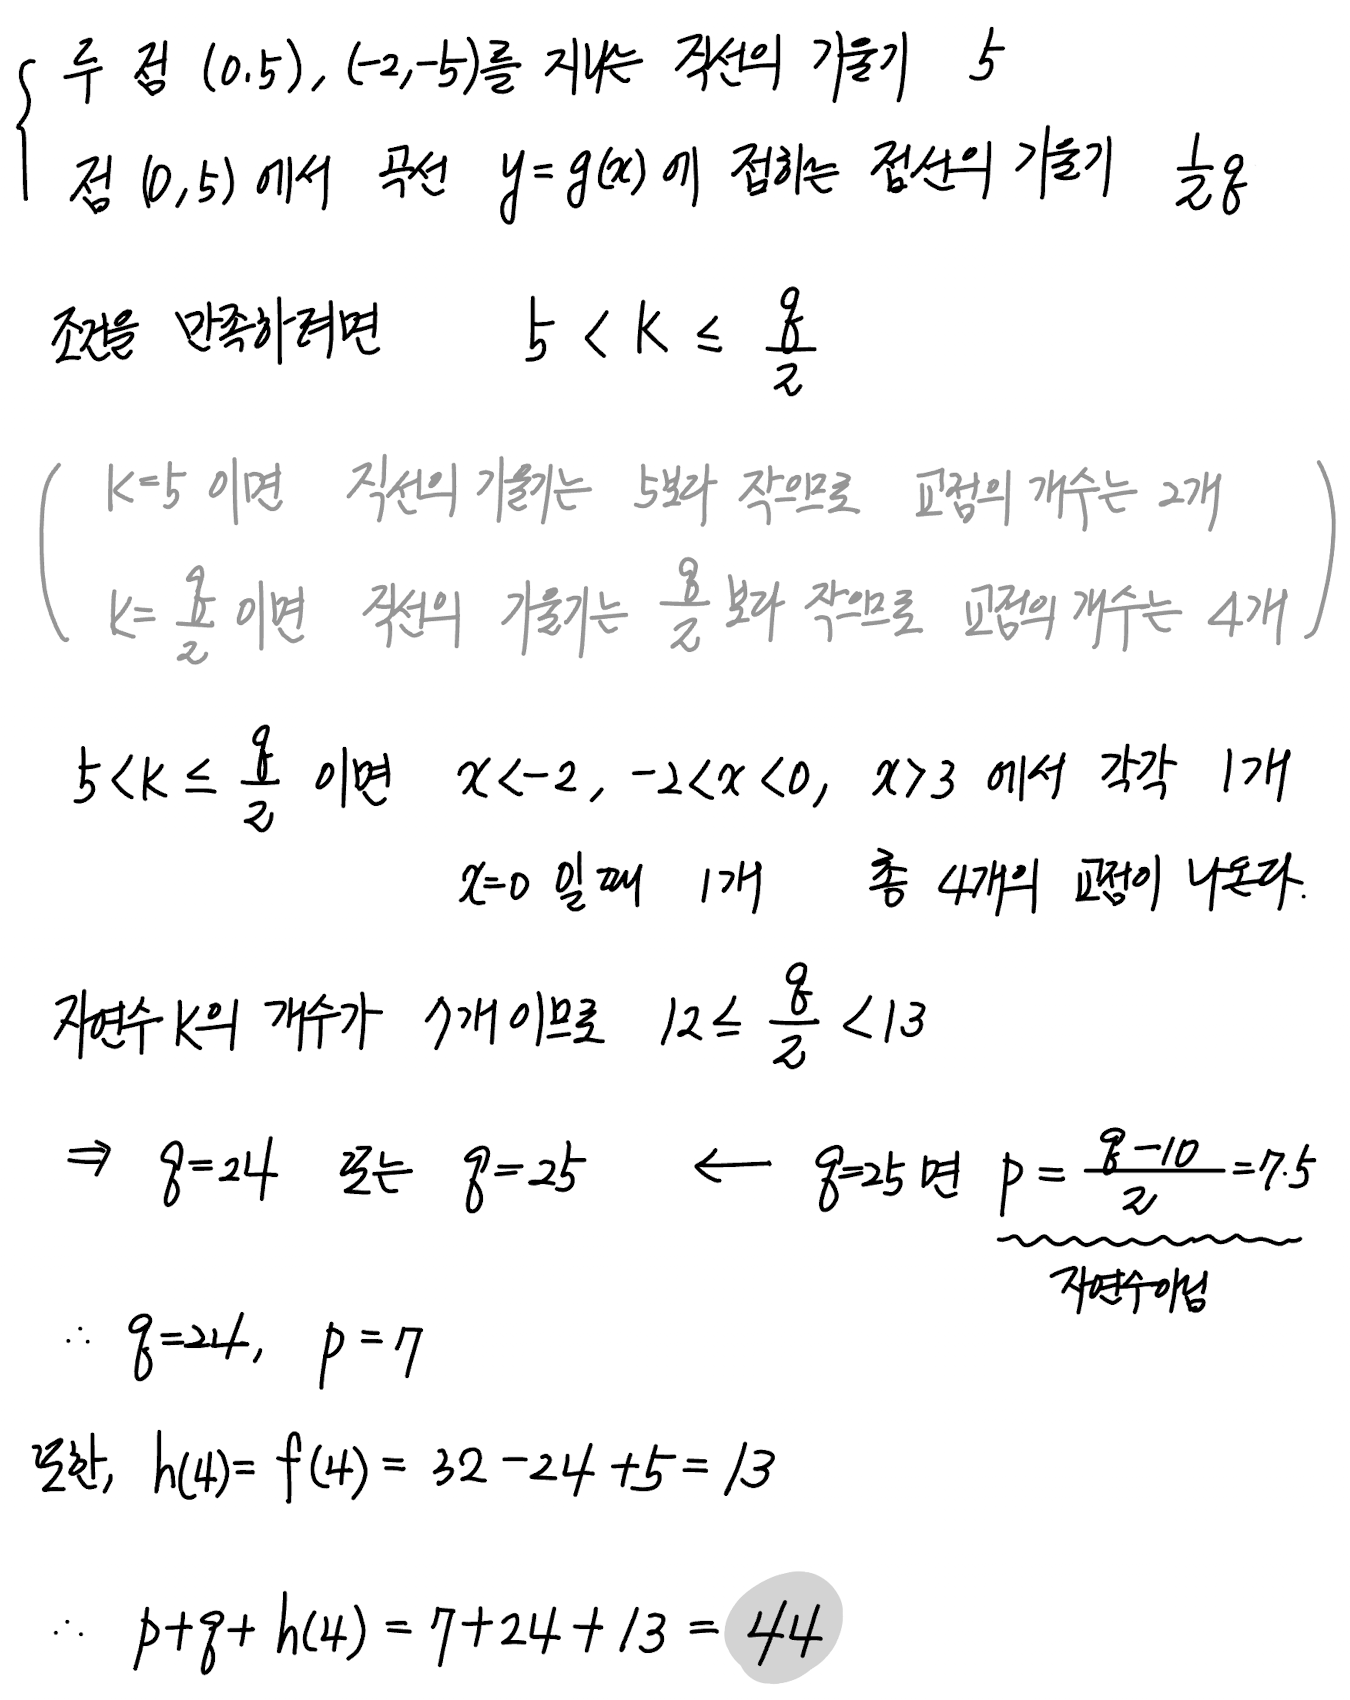 두 점 (0.5), (-2,-5)를 지나는 직선의 기울기 5
점 (0,5)에서 곡선 y=g(x)에 접하는 접선의 기울기 1/2 q
조건을 만족하려면 5 < k ≤ q/2
k=5 이면 직선의 기울기는 5보다 작으므로 교점의 개수는 2개
k= q/2 이면 직선의 기울기는 q/2 보다 작으므로 교점의 개수는 4개
5<k≤ q/2 이면 x<-2, -2<x<0, x>3 에서 각각 1개
x=0 일때 1개 총 4개의 교점이 나온다.
자연수 k의 개수가 7개 이므로 12≤ q/2 <13
⇒ q=24 또는 q=25 ← q=25면 p = (q-10)/2 =7.5
자연수아님
∴ q=24, p=7
또한, h(4)= f(4) = 32-24+5=13
∴ p+q+h(4) = 7+24+13 = 44